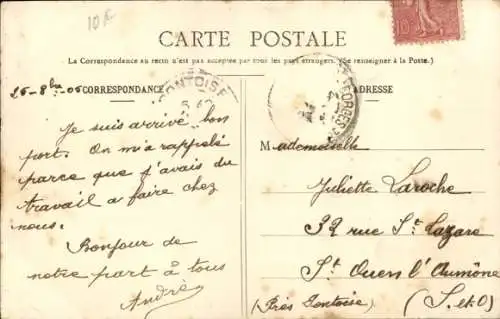 10 F
10
CARTE POSTALE
La Correspondance au recto n'est pas acceptée par tous les pays étrangers. (Se renseigner à la Poste.)
26-8bre-06 CORRESPONDANCE
PONTOISE
GEORGES
ADRESSE
Je suis arrivé bon
port. On m'a rappelé
parce que j'avais du
travail a faire chez
nous.
Bonjour de
notre part à tous
André
Mademoiselle
Juliette Laroche
32 rue St Lazare
St Ouen l'Aumône
(Près Pontoise) (S. et O)